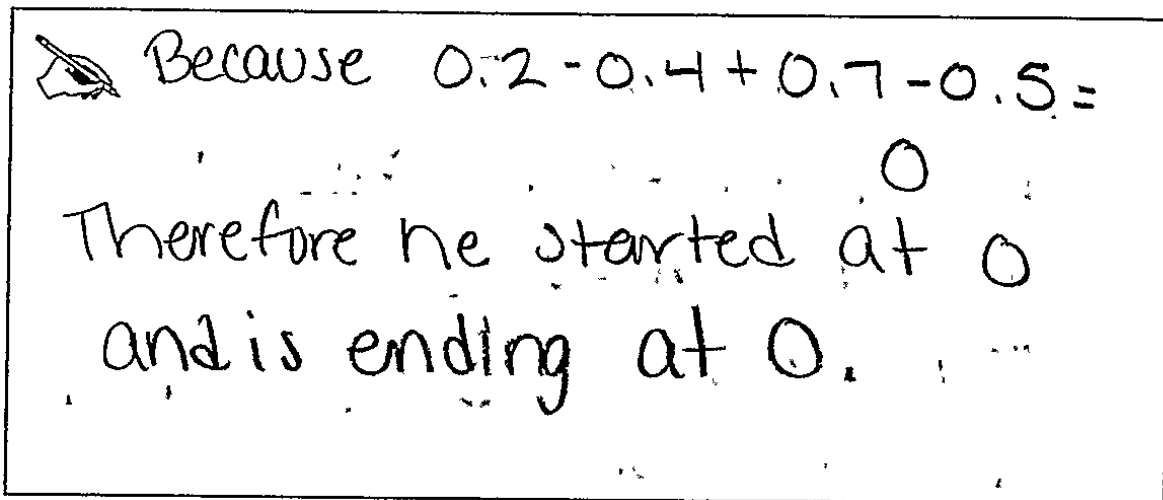 Because 0.2-0.4+0.7-0.5=
0
Therefore he started at 0
and is ending at 0.